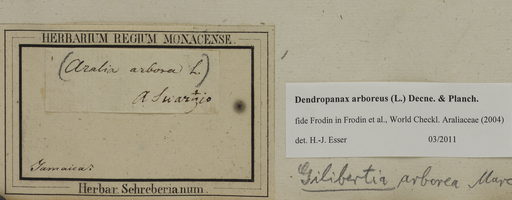 HERBARIUM REGIUM MONACENSE.
(Aralia arborea L.)
A Swartzio
Jamaica.
Herbar. Schreberianum.
Dendropanax arboreus (L.) Decne. & Planch.
fide Frodin in Frodin et al., World Checkl. Araliaceae (2004)
det. H.-J. Esser 03/2011
Gilibertia arborea Marc